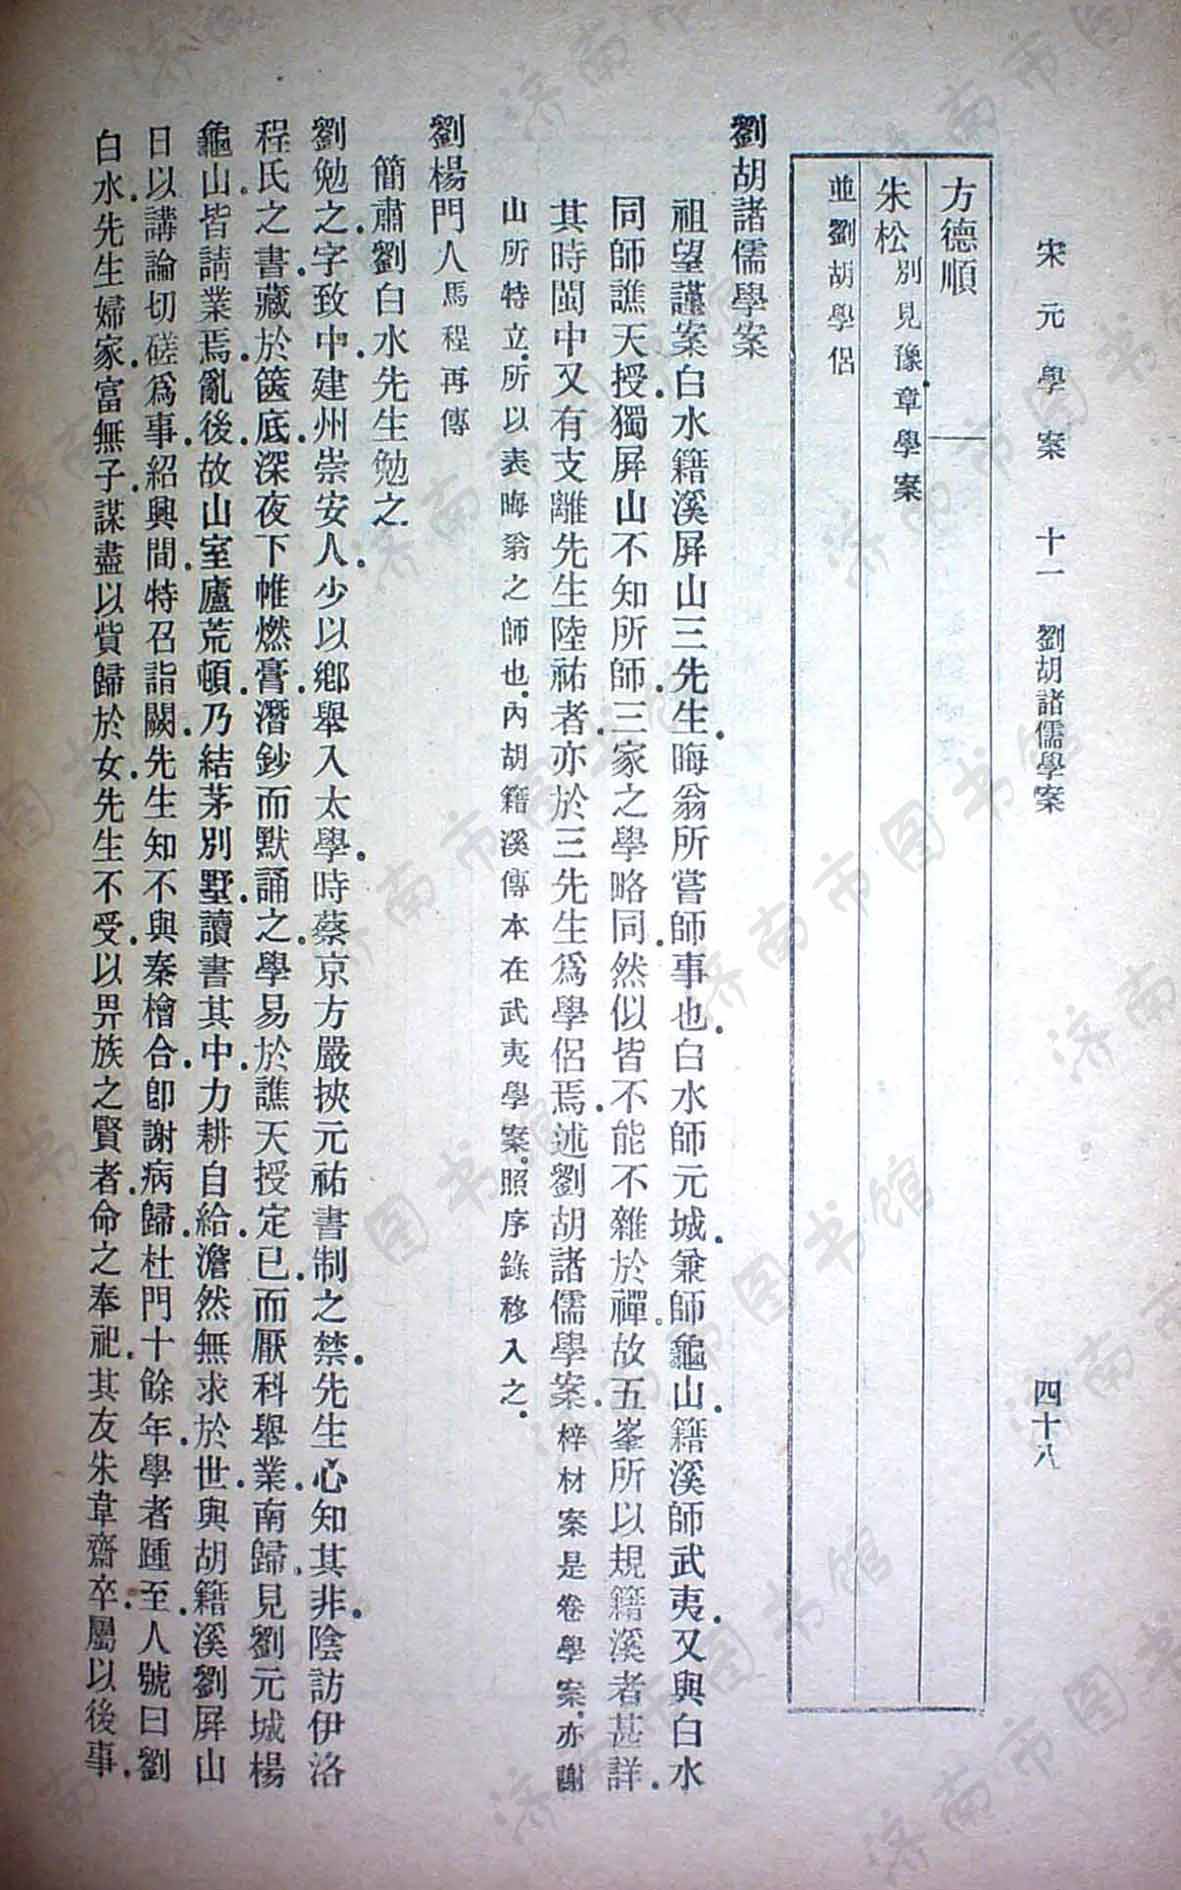 宋元學案 十一 劉胡諸儒學案 四十八
方德順
朱松 別見豫章學案
並劉胡學侶
劉胡諸儒學案
祖望謹案白水籍溪屏山三先生晦翁所嘗師事也白水師元城兼師龜山籍溪師武夷又與白水
同師譙天授獨屏山不知所師三家之學略同然似皆不能不雜於禪故五峯所以規籍溪者甚詳
其時閩中又有支離先生陸祐者亦於三先生爲學侶焉述劉胡諸儒學案 梓材案是卷學案亦謝
山所特立所以表晦翁之師也內胡籍溪傳本在武夷學案照序錄移入之
劉楊門人 馬程再傳
簡肅劉白水先生勉之
劉勉之字致中建州崇安人少以鄉舉入太學時蔡京方嚴挾元祐書制之禁先生心知其非陰訪伊洛
程氏之書藏於篋底深夜下帷燃膏潛鈔而默誦之學易於譙天授定已而厭科舉業南歸見劉元城楊
龜山皆請業焉亂後故山室廬荒頓乃結茅別墅讀書其中力耕自給澹然無求於世與胡籍溪劉屏山
日以講論切磋爲事紹興間特召詣闕先生知不與秦檜合卽謝病歸杜門十餘年學者踵至人號曰劉
白水先生婦家富無子謀盡以貲歸於女先生不受以畀族之賢者命之奉祀其友朱韋齋卒屬以後事